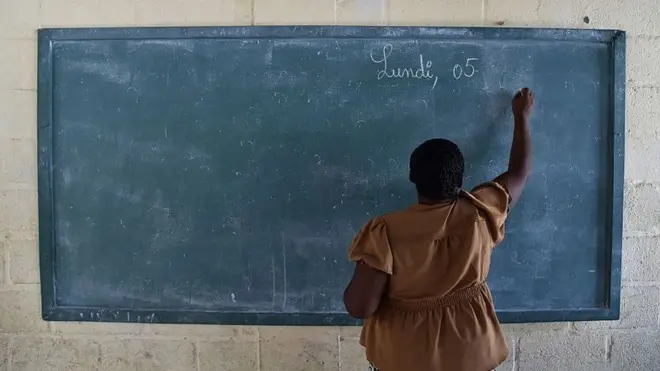 Lundi, 05